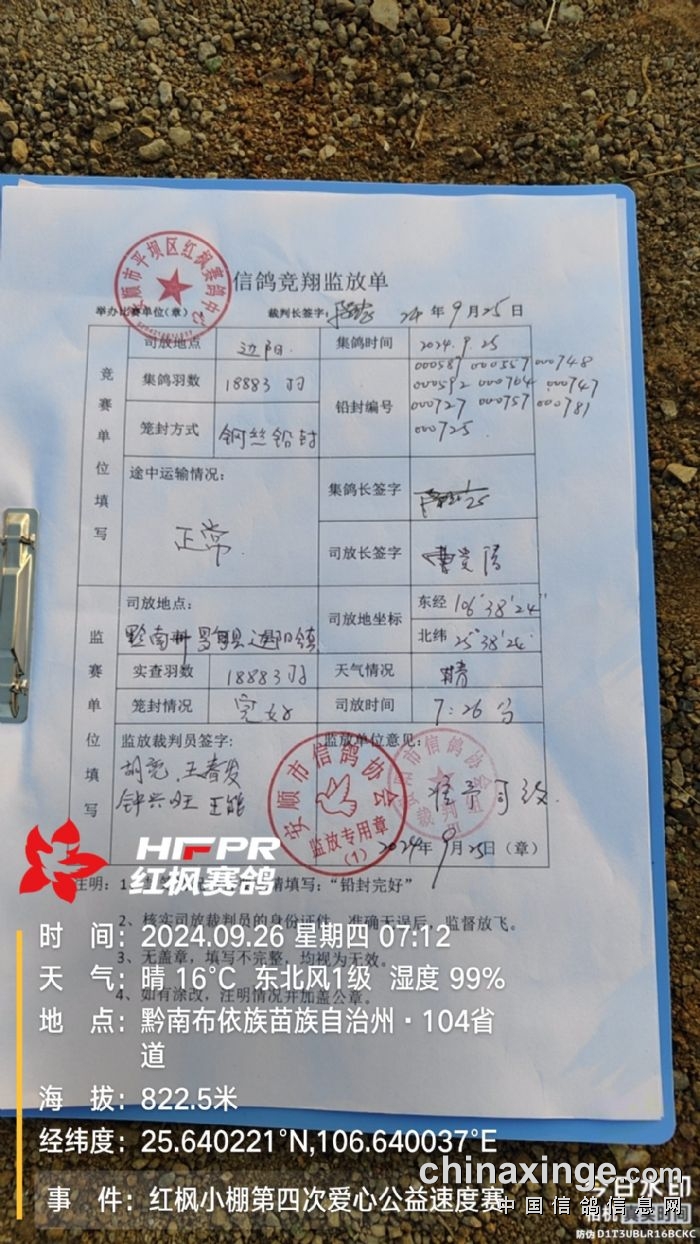 安顺市平坝区红枫赛鸽中心
信鸽竞翔监放单
举办比赛单位(章) 裁判长签字: 24年9月25日
竞赛单位填写
司放地点 边阳 集鸽时间 2024.9.25
集鸽羽数 18883羽 铅封编号 000587 000557 000748
000592 000764 000747
000727 000757 000781
000725
笼封方式 钢丝铅封
途中运输情况: 正常 集鸽长签字
司放长签字
监赛单位填写
司放地点: 黔南州罗甸县边阳镇 司放地坐标 东经 106°38′24″
北纬 25°38′24″
实查羽数 18883羽 天气情况 晴
笼封情况 完好 司放时间 7:26分
监放裁判员签字: 监放单位意见:
胡亮 王春发
钟兴旺 王能
准予司放
安顺市信鸽协会
监放专用章
(1)
安顺市信鸽协会
裁判组
2024年9月25日(章)
HFPR
红枫赛鸽
注明:1、 请填写:“铅封完好”
2、核实司放裁判员的身份证件,准确无误后,监督放飞。
3、无盖章,填写不完整,均视为无效。
4、如有涂改,注明情况并加盖公章。
时 间: 2024.09.26 星期四 07:12
天 气: 晴 16°C 东北风1级 湿度 99%
地 点: 黔南布依族苗族自治州·104省
道
海 拔: 822.5米
经纬度: 25.640221°N,106.640037°E
事 件: 红枫小棚第四次爱心公益速度赛
chinaxinge.com
中国信鸽信息网
今日水印
相机 真实时间
防伪 D1T3UBLR16BCKC